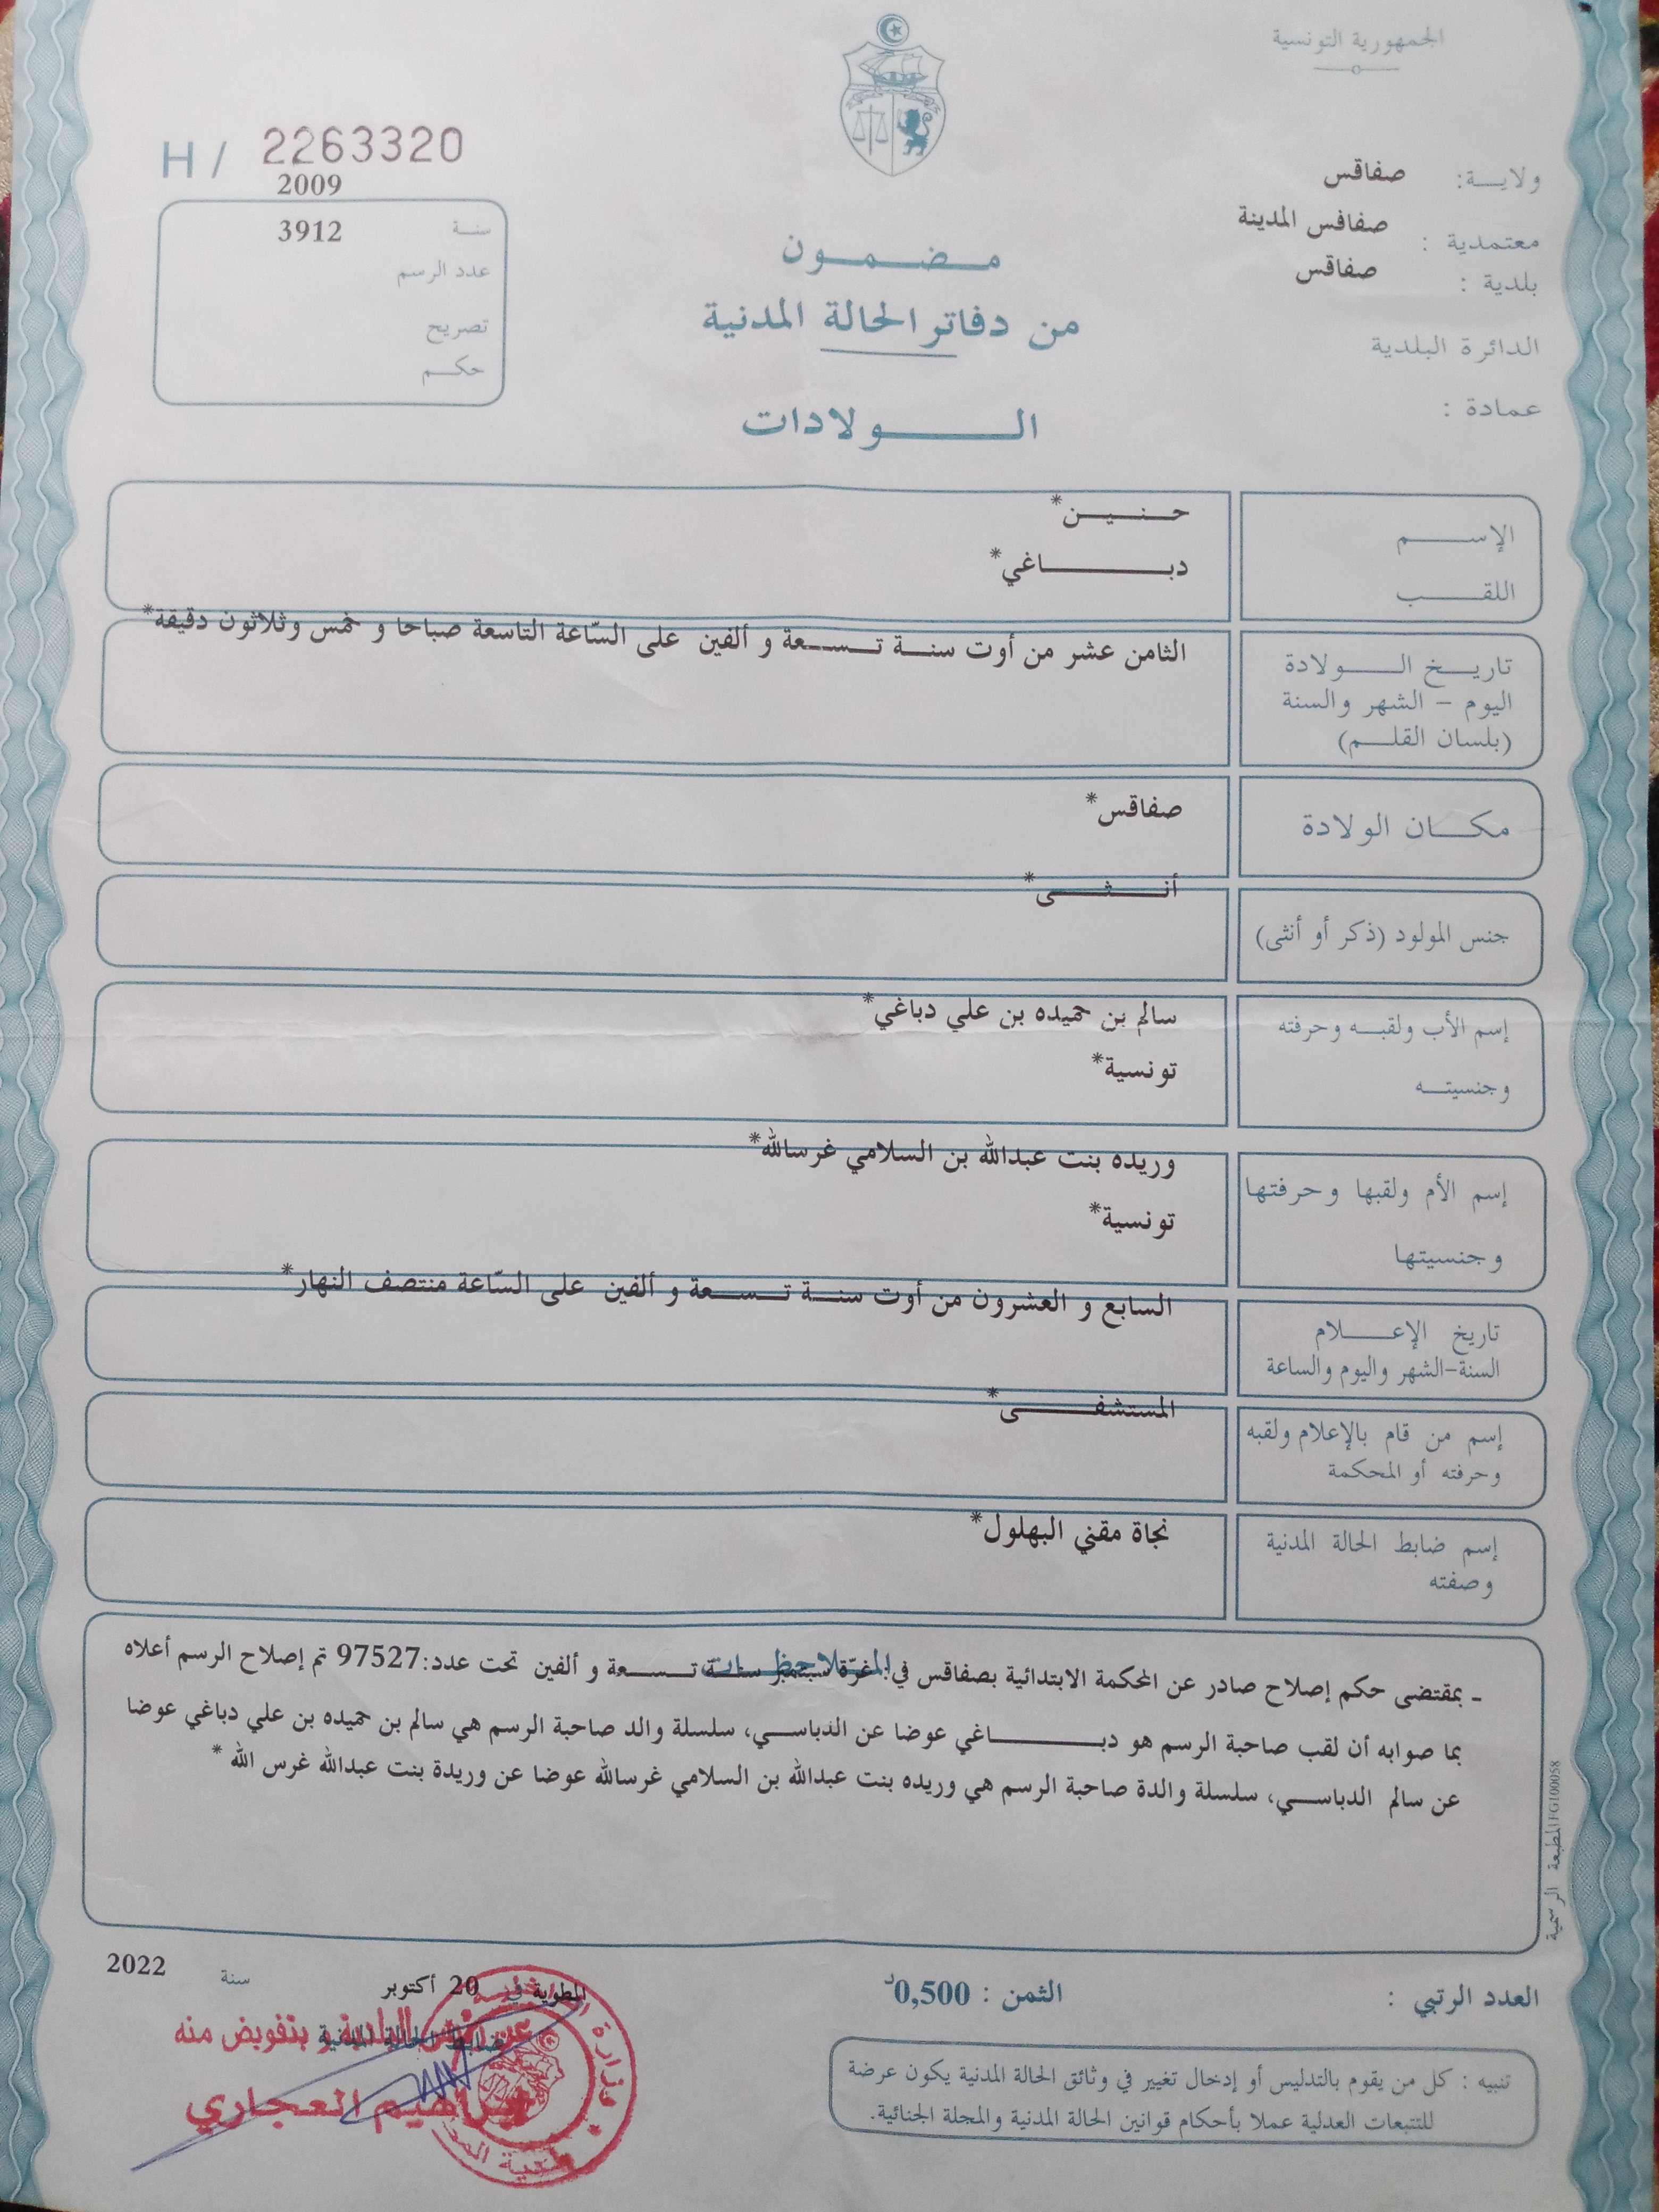 الجمهورية التونسية
H / 2263320
ولايـــة: صفاقس
معتمدية : صفافس المدينة
بلدية : صفاقس
الدائرة البلدية
عمادة :
2009
سنـة 3912
عدد الرسم
تصريح
حكــم
مـضـمـون
من دفاتر الحالة المدنية
الـولادات
الإســـم حـنـيـن*
اللقـــب دبــاغي*
تاريـخ الــولادة الثامن عشر من أوت سنـة تـسـعة و ألفين على السّاعة التاسعة صباحا و خمس وثلاثون دقيقة*
اليوم - الشهر والسنة
(بلسان القلـم)
مكـــان الولادة صفاقس*
جنس المولود (ذكر أو أنثى) أنــثــى*
إسم الأب ولقبـه وحرفته سالم بن حميده بن علي دباغي*
وجنسيتـه تونسية*
إسم الأم ولقبها وحرفتها وريده بنت عبدالله بن السلامي غرسالله*
وجنسيتها تونسية*
تاريخ الإعــلام السابع و العشرون من أوت سنـة تـسـعة و ألفين على السّاعة منتصف النهار*
السنة-الشهر واليوم والساعة
إسم من قام بالإعلام ولقبه المستشفــى*
وحرفته أو المحكمة
إسم ضابط الحالة المدنية نجاة مقني البهلول*
وصفته
الملاحظــات
- بمقتضى حكم إصلاح صادر عن المحكمة الابتدائية بصفاقس في: غرّة سبتمبر سنـة تـسـعة و ألفين تحت عدد:97527 تم إصلاح الرسم أعلاه
بما صوابه أن لقب صاحبة الرسم هو دبــاغي عوضا عن الدباسـي، سلسلة والد صاحبة الرسم هي سالم بن حميده بن علي دباغي عوضا
عن سالم الدباسـي، سلسلة والدة صاحبة الرسم هي وريده بنت عبدالله بن السلامي غرسالله عوضا عن وريدة بنت عبدالله غرس الله *
المطبعة الرسمية FG100058
العدد الرتبي :
الثمن : 0,500د
المطوية في 20 أكتوبر سنة 2022
ضابط الحالة المدنية
بتفويض منه
العجاري
تنبيه : كل من يقوم بالتدليس أو إدخال تغيير في وثائق الحالة المدنية يكون عرضة
للتتبعات العدلية عملا بأحكام قوانين الحالة المدنية والمجلة الجنائية.